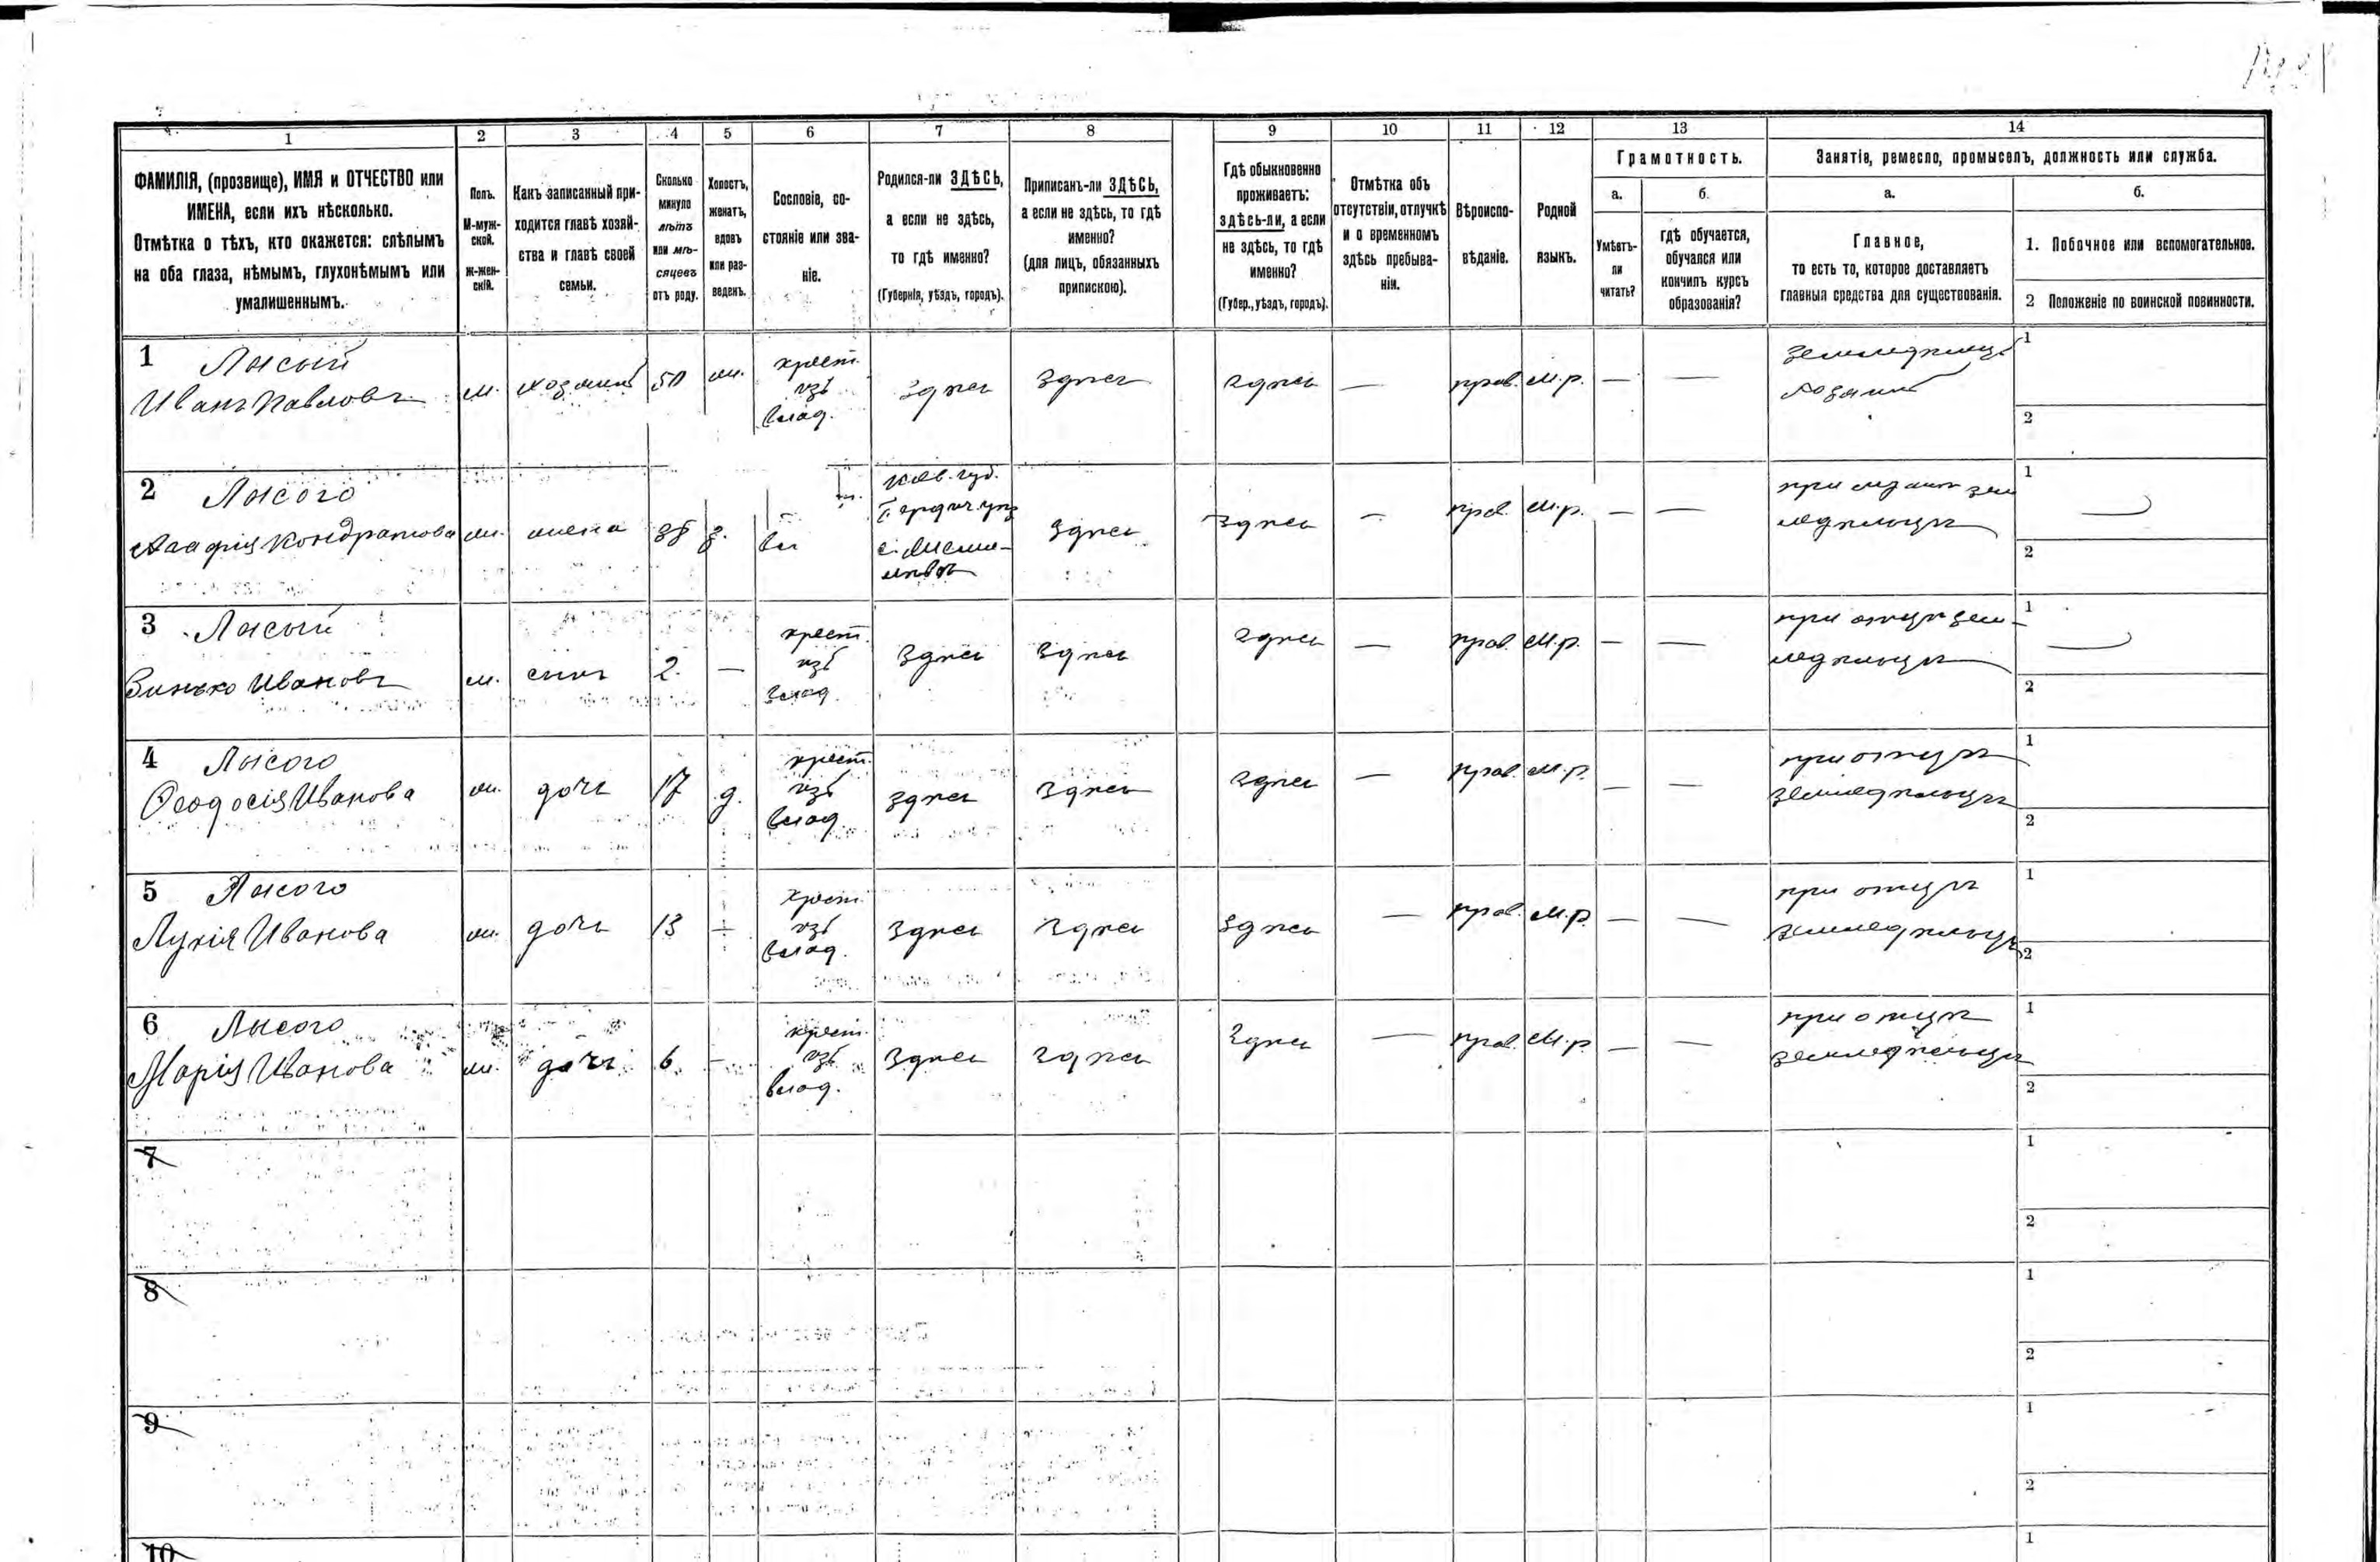 1
2
3
4
5
6
7
8
9
10
11
12
13
14
ФАМИЛІЯ, (прозвище), ИМЯ и ОТЧЕСТВО или
ИМЕНА, если ихъ нѣсколько.
Отмѣтка о тѣхъ, кто окажется: слѣпымъ
на оба глаза, нѣмымъ, глухонѣмымъ или
умалишеннымъ.
Полъ.
М-муж-
ской.
Ж-жен-
скій.
Какъ записанный при-
ходится главѣ хозяй-
ства и главѣ своей
семьи.
Сколько
минуло
лѣтъ
или мѣ-
сяцевъ
отъ роду.
Холостъ,
женатъ,
вдовъ
или раз-
веденъ.
Сословіе, со-
стояніе или зва-
ніе.
Родился-ли ЗДѢСЬ,
а если не здѣсь,
то гдѣ именно?
(Губернія, уѣздъ, городъ).
Приписанъ-ли ЗДѢСЬ,
а если не здѣсь, то гдѣ
именно?
(для лицъ, обязанныхъ
припискою).
Гдѣ обыкновенно
проживаетъ:
здѣсь-ли, а если
не здѣсь, то гдѣ
именно?
(Губер., уѣздъ, городъ).
Отмѣтка объ
отсутствіи, отлучкѣ
и о временномъ
здѣсь пребыва-
ніи.
Вѣроиспо-
вѣданіе.
Родной
языкъ.
Грамотность.
а.
Умѣетъ-
ли
читать?
б.
гдѣ обучается,
обучался или
кончилъ курсъ
образованія?
Занятіе, ремесло, промыселъ, должность или служба.
а.
Главное,
то есть то, которое доставляетъ
главныя средства для существованія.
б.
1. Побочное или вспомогательное.
2 Положеніе по воинской повинности.
1 Лысый
Иванъ Павловъ
м. хозяинъ 50 ж.
крест.
изъ
влад.
здѣсь здѣсь здѣсь — прав. м.р. — —
земледѣлецъ
хозяинъ
1
2
2 Лысого
Агафія Кондратова
ж. жена 38 з.
Кіев. губ.
Бердич. уѣз
здѣсь здѣсь — прав. м.р. — —
при мужѣ зем
ледѣльцѣ
1
2
3 Лысый
Зинько Ивановъ
м. сынъ 2. —
крест.
изъ
влад.
здѣсь здѣсь здѣсь — прав. м.р. — —
при отцѣ зем-
ледѣльцѣ
1
2
4 Лысого
Ѳеодосія Иванова
ж. дочь 17 д.
крест.
изъ
влад.
здѣсь здѣсь здѣсь — прав. м.р. — —
при отцѣ
земледѣльцѣ
1
2
5 Лысого
Лукія Иванова
ж. дочь 13 —
крест.
изъ
влад.
здѣсь здѣсь здѣсь — прав. м.р. — —
при отцѣ
земледѣльцѣ
1
2
6 Лысого
Марія Иванова
ж. дочь 6. —
крест.
изъ
влад.
здѣсь здѣсь здѣсь — прав. м.р. — —
при отцѣ
земледѣльцѣ
1
2
7
1
2
8
1
2
9
1
2
10
1